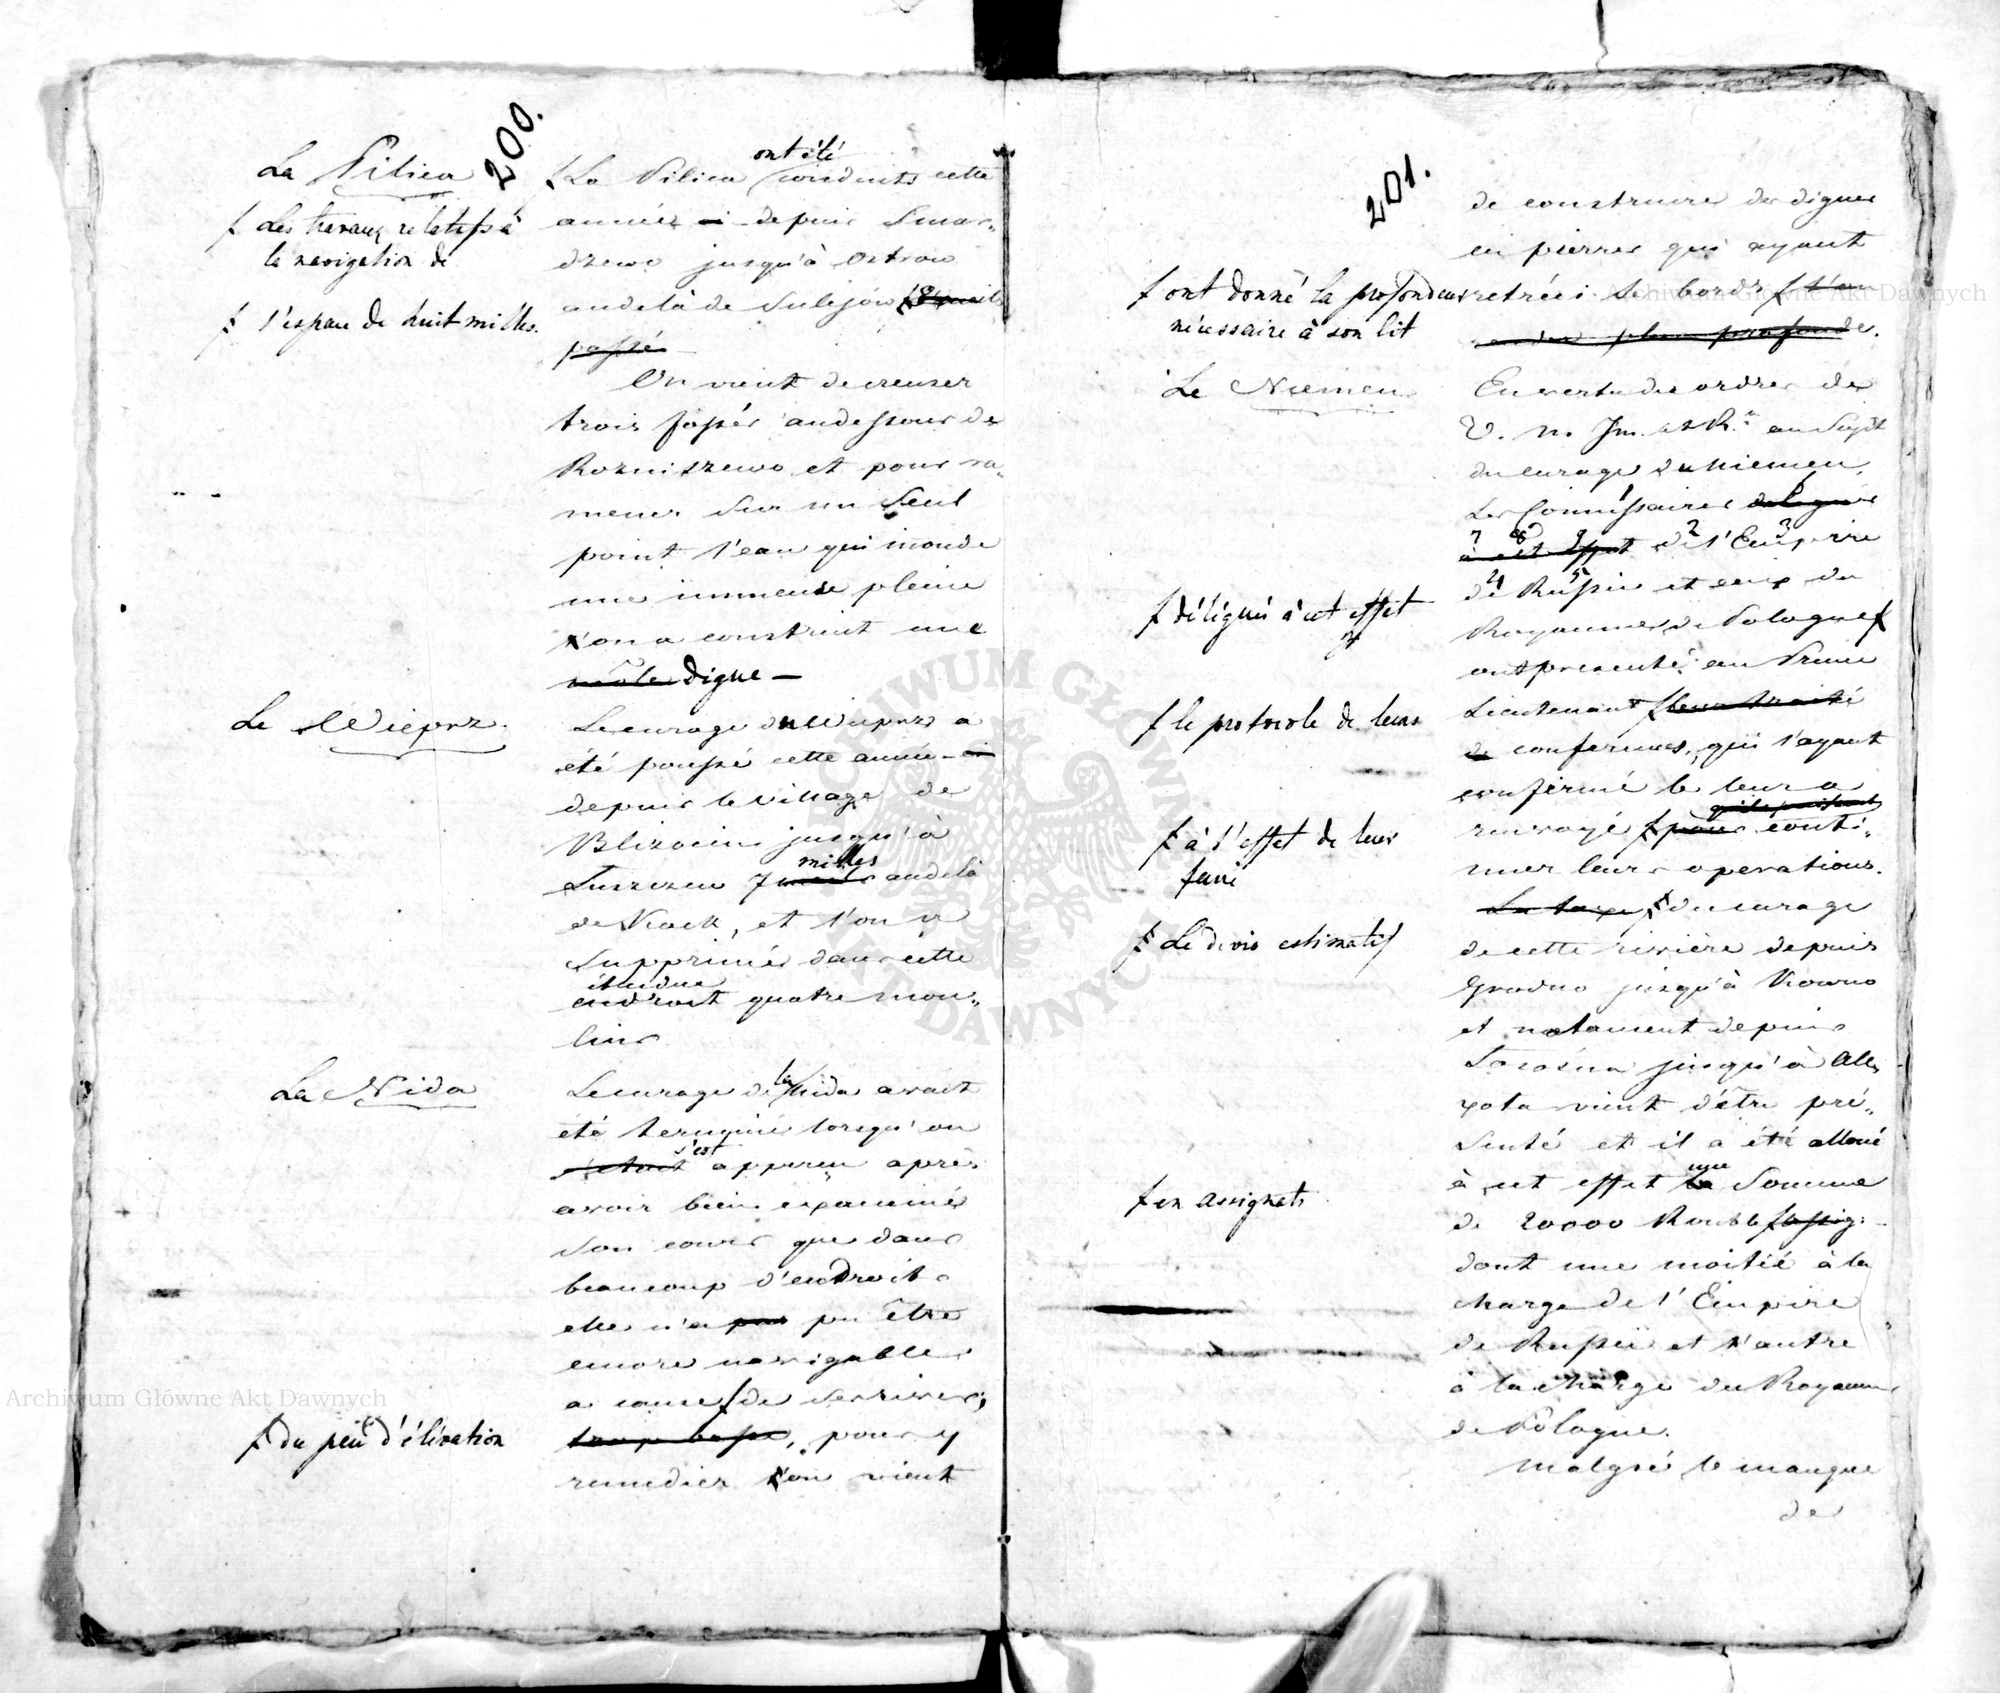 200.
La Pilica
ƒ Les travaux relatifs à
la navigation de
ƒ l'espace de huit milles.
ƒ La Pilica ont été conduits cette
année depuis Smar„
dzewo jusqu'à Ostrow
audelà de Sulejów
passé
On vient de creuser
trois fossés audessous de
Rozniszewo et pour ra„
mener sur un seul
point l'eau qui inonde
une immense pleine
l'on a construit une
môle digue —
Le Wieprz.
Le curage du Wieprz a
été poussé cette année
depuis le village de
Blizocin jusqu'à
7 milles audelà
de Kock, et l'on a
supprimé dans cette
étendue
endroit quatre mou„
lins
La Nida
Le curage de la Nida avait
été terminé lorsqu'on
s'est
s'étoit apperçu après
avoir bien examiné
son cours que dans
beaucoup d'endroits
elle n'a pas pu être
encore navigable
a cause ƒ de ses rives,
ƒ du peu d'élévation
trop basse, pour y
remedier l'on vient
201.
de construire des digues
en pierres qui ayant
retréci ses bords ƒ l'on
ƒ ont donné la profondeur
nécessaire à son lit
plus profonde.
Le Niemen
En vertu des ordres de
V. M. Im. et R. au sujet
du curage du Niemen,
Les Commissaires delegués
à cet effet de l'Empire
de Russie et ceux du
ƒ délégués à cet effet
Royaume de Pologne ƒ
ont presenté au Prince
Lieutenant ƒ leur traité
ƒ le protocole de leurs
de conferences, qui l'ayant
confirmé le leur a
renvoyé ƒ pour qu'ils puissent conti„
ƒ à l'effet de leur
faire
nuer leurs operations.
La taxe ƒ du curage
ƒ Le devis estimatif
de cette rivière depuis
Grodno jusqu'à Kowno
et notament depuis
Sososna jusqu'à Ale„
xota vient d'être pré„
senté et il a été alloué
à cet effet une
la somme
de 20000 Rouble ƒ assig:
ƒ en assignats
dont une moitié à la
charge de l'Empire
de Russie et l'autre
à la charge du Royaume
de Pologne.
Malgré le manque
de
Archiwum Główne Akt Dawnych
Archiwum Główne Akt Dawnych
ARCHIWUM GŁÓWNE AKT DAWNYCH